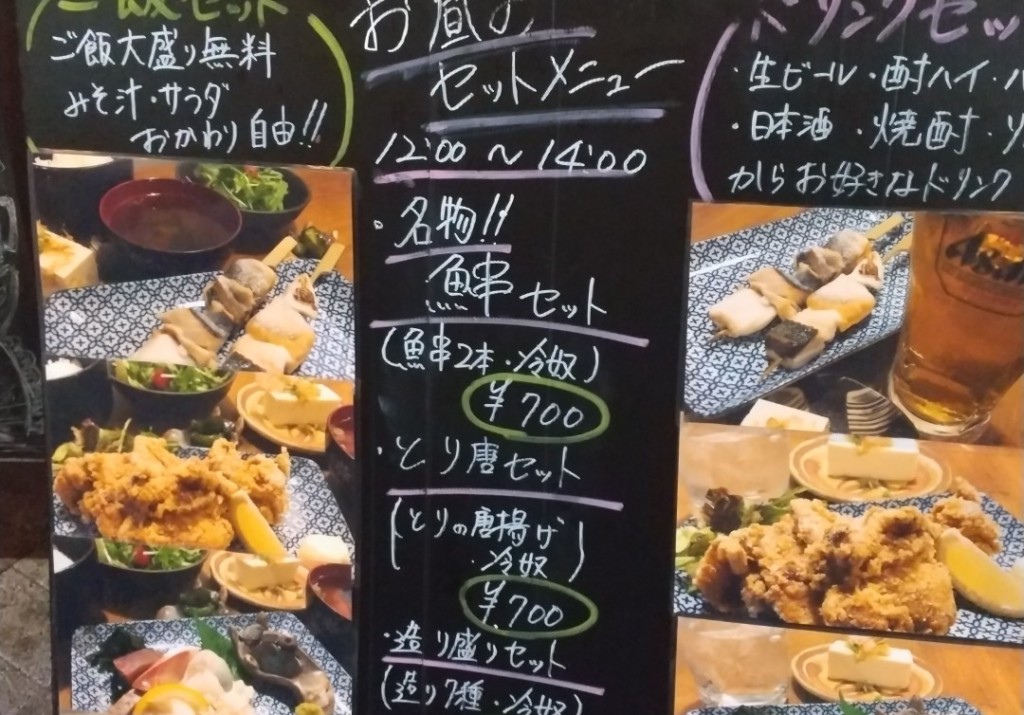 ご飯セット
ご飯大盛り無料
みそ汁・サラダ
おかわり自由!!
お昼の
セットメニュー
12:00 ～ 14:00
・名物!!
魚串セット
(魚串2本・冷奴)
¥700
・とり唐セット
(とりの唐揚げ
・冷奴)
¥700
・造り盛りセット
(造り7種・冷奴)
ドリンクセッ
・生ビール・酎ハイ・ハ
・日本酒・焼酎・ソ
からお好きなドリンク
Asahi